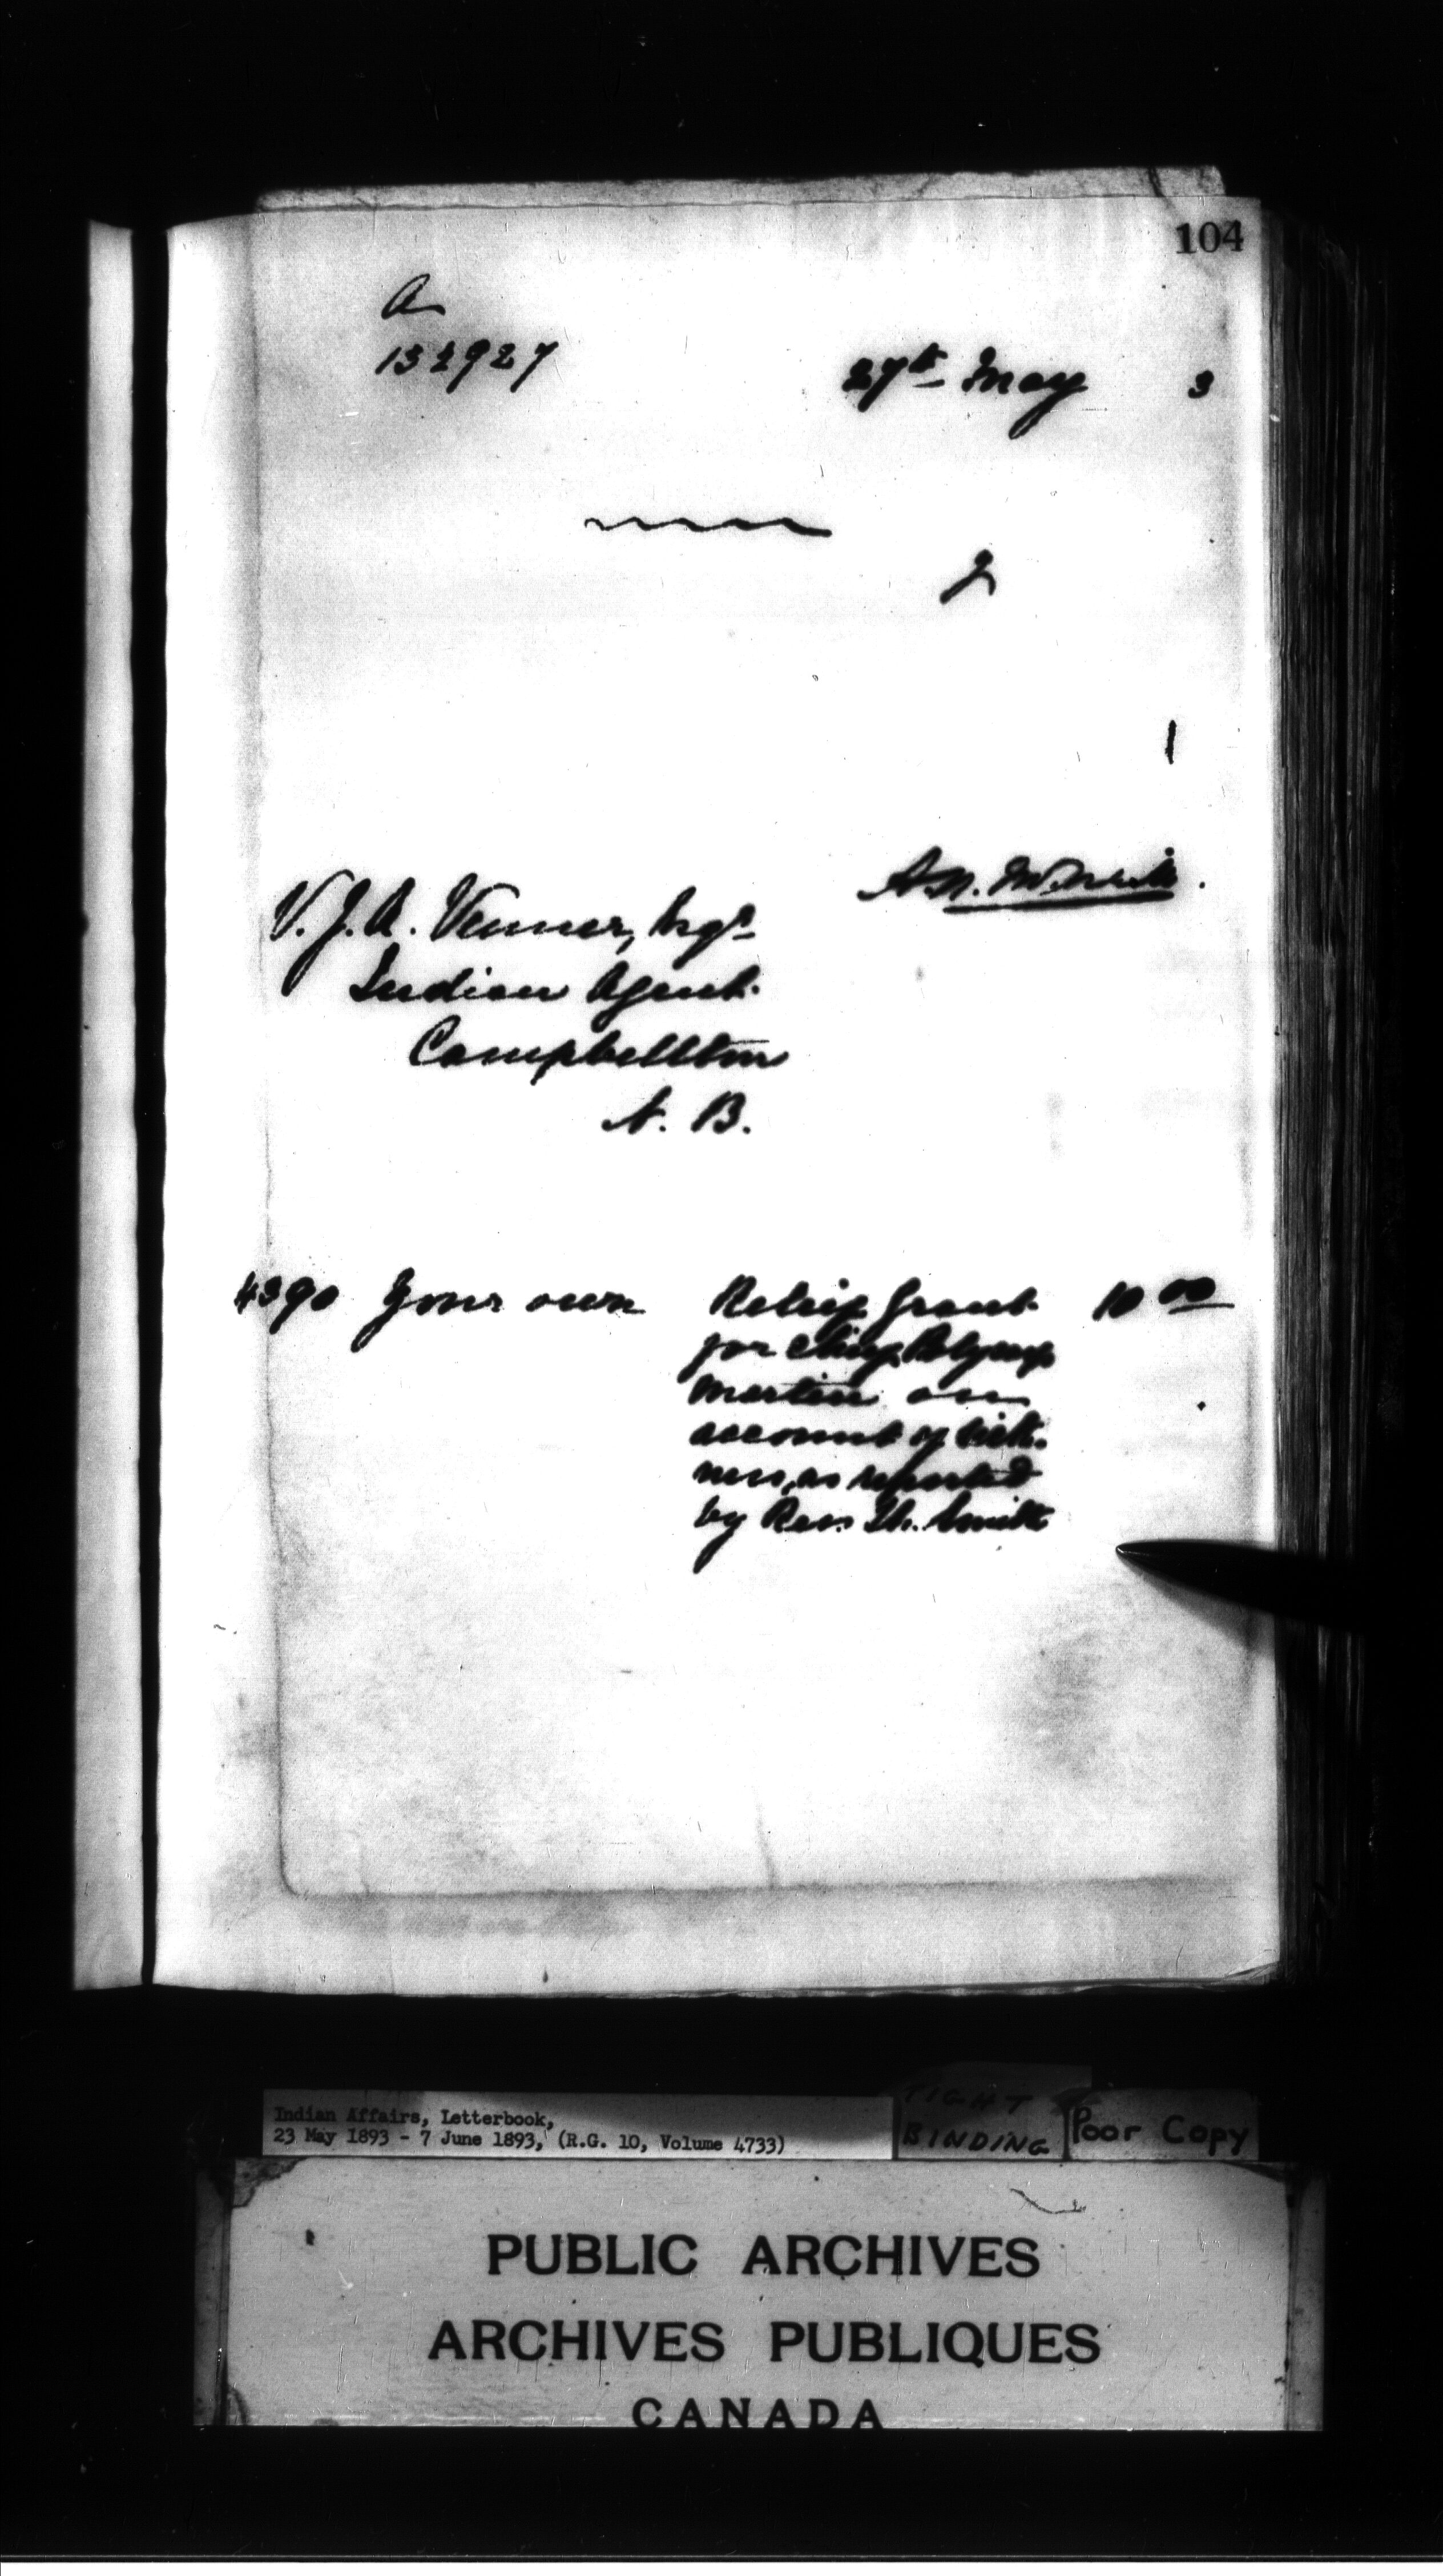 104
A
132927
27th May 3
J
1
A.N. McNeill.
V.J.A. Venner, Esqr
Indian Agent.
Campbellton
N. B.
4390 Your own Relief Grant 10 00
for Chief Polycarp
Martin on
account of sick-
ness, as reported
by Rev. Th. Smith
Indian Affairs, Letterbook,
23 May 1893 - 7 June 1893, (R.G. 10, Volume 4733)
TIGHT
BINDING
Poor Copy
PUBLIC ARCHIVES
ARCHIVES PUBLIQUES
CANADA